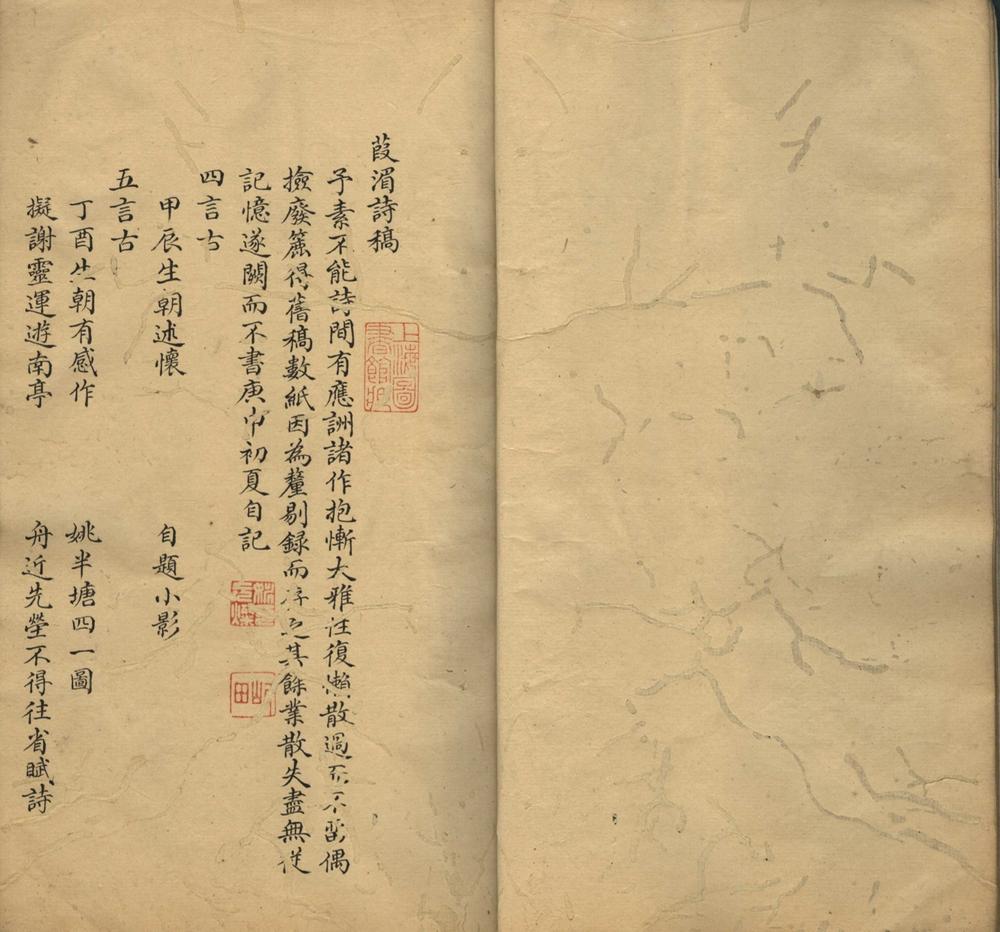 葭湄詩稿
予素不能詩間有應詶諸作抱慚大雅往復懶散過而不留偶
撿廢簏得舊稿數紙因為釐剔錄而存之其餘業散失盡無從
記憶遂闕而不書庚申初夏自記
四言古
甲辰生朝述懷 自題小影
五言古
丁酉生朝有感作 姚半塘四一圖
擬謝靈運遊南亭 舟近先塋不得往省賦詩
上海圖書館所